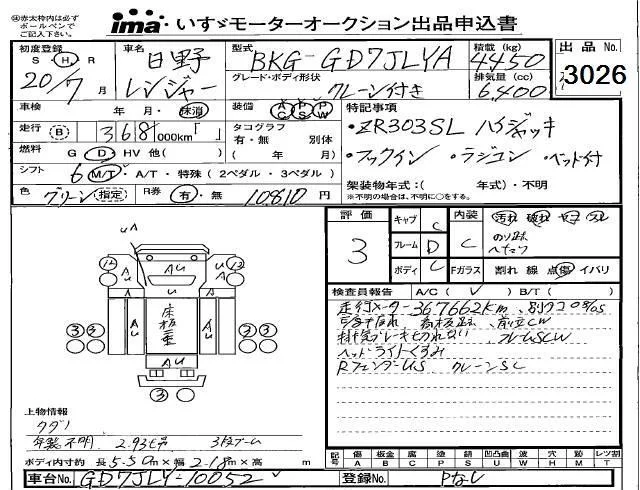 ④赤太枠内は必ず
ボールペンで
ご記入下さい。
ima いすゞモーターオークション出品申込書
初度登録 S H R 20/7 月
車名 日野 レンジャー
型式 BKG-GD7JLYA
グレード・ボディ形状 クレーン付き
積載(kg) 4450
排気量(cc) 6,400
出品No. 3026
車検 年・月・抹消
装備 AC PS PW
走行 B 368,000km「 」
タコグラフ 有・無 別体 ( 年 月)
燃料 G D・HV 他( )
シフト 6 M/T・A/T・特殊(2ペダル・3ペダル)
色 グリーン 指定 R券 有・無 10810 円
特記事項
・ZR303SL ハイジャッキ
・フックイン ・ラジコン ・ベッド付
架装物年式:( 年式)・不明
※不明の場合は、不明に○をする。
評価 3
キャブ C
フレーム D
ボディ C
内装 C
汚れ 破れ ヤケ
のり跡
Fガラス 割れ 線 点傷 イバリ
検査員報告 A/C( ✓ ) B/T( )
走行メーター 367662km
看板跡
排気ブレーキ切れない フレームSCW
ヘッドライトくすみ
RフェンダーUS クレーンSC
uA
AU
床板重
12 12
3 3 3 3
3
上物情報
タダノ
年式不明 2.93t吊 3段ブーム
ボディ内寸約 長 5.50m×幅 2.18m
記号 傷 A 板金 B 腐 C 塗 P サビ S 凹凸曲 U 波 W 穴 H 外 M レンツ割 T
車台No. GD7JLY-10052
登録No. Pなし